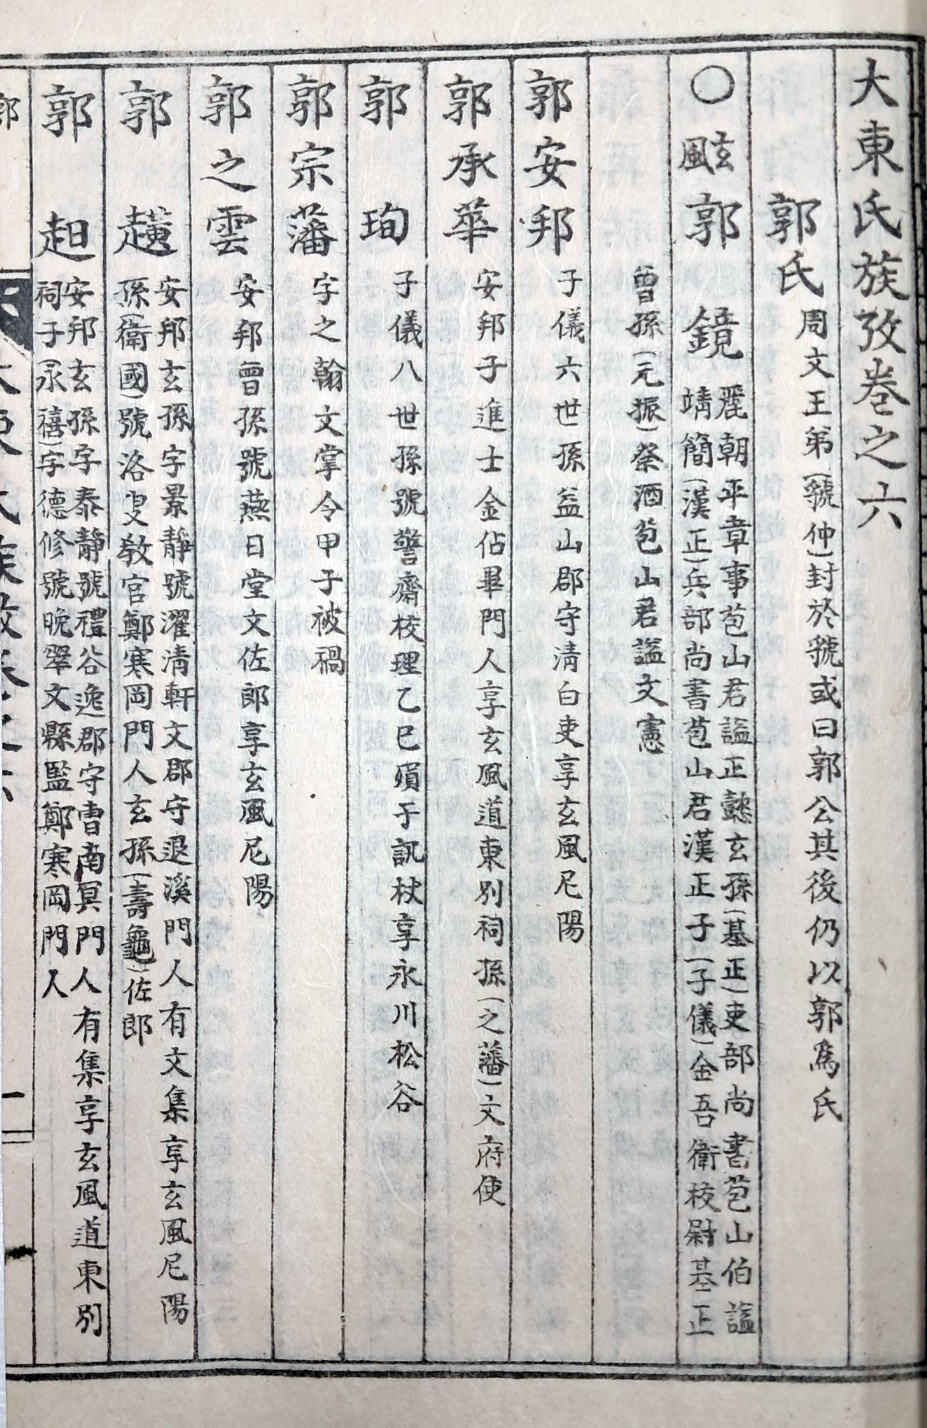 大東氏族攷卷之六
郭氏 周文王弟(虢仲)封於虢或曰郭公其後仍以郭爲氏
〇玄風郭 鏡 麗朝平章事苞山君諡正懿玄孫(基正)吏部尚書苞山伯諡
靖簡(漢正)兵部尚書苞山君漢正子(子儀)金吾衛校尉基正
曾孫(元振)祭酒苞山君諡文憲
郭安邦 子儀六世孫益山郡守清白吏享玄風尼陽
郭承華 安邦子進士金佔畢門人享玄風道東別祠孫(之藩)文府使
郭珣 子儀八世孫號警齋校理乙巳殞于訊杖享永川松谷
郭宗藩 字之翰文掌令甲子被禍
郭之雲 安邦曾孫號燕日堂文佐郎享玄風尼陽
郭趪 安邦玄孫字景靜號濯清軒文郡守退溪門人有文集享玄風尼陽
孫(衛國)號洛叟教官鄭寒岡門人玄孫(壽龜)佐郎
郭赾 安邦玄孫字泰靜號禮谷逸郡守曺南冥門人有集享玄風道東別
祠子(永禧)字德修號晩翠文縣監鄭寒岡門人
郭
大東氏族攷卷之六
一